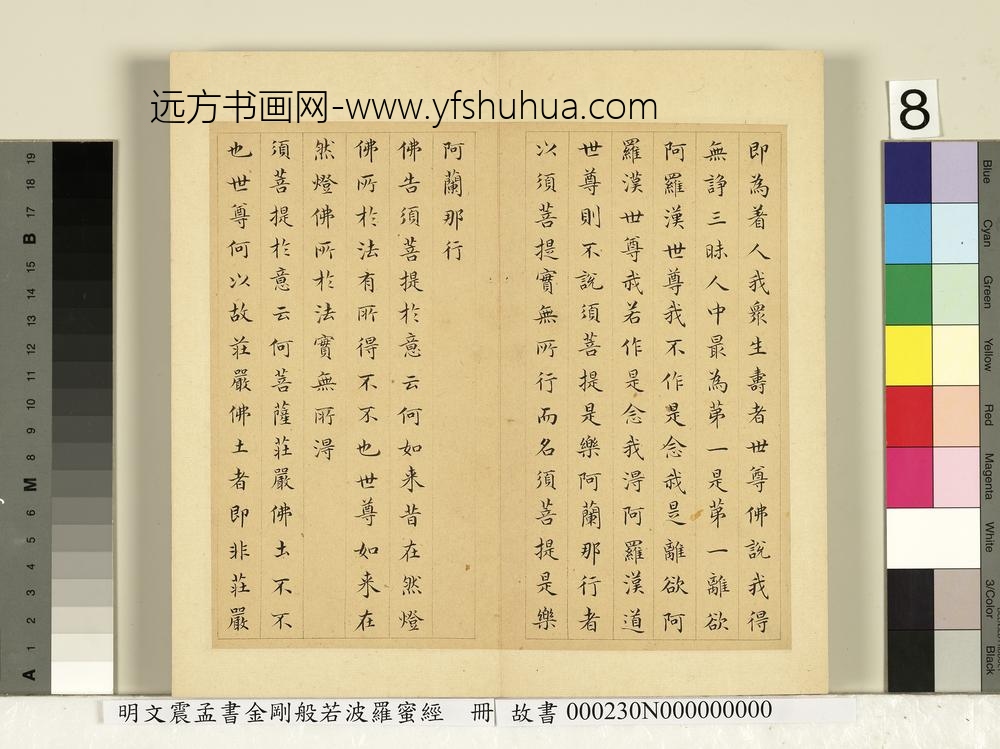 远方书画网-www.yfshuhua.com
8
即為着人我衆生壽者世尊佛說我得
無諍三昧人中最為第一是第一離欲
阿羅漢世尊我不作是念我是離欲阿
羅漢世尊我若作是念我得阿羅漢道
世尊則不說須菩提是樂阿蘭那行者
以須菩提實無所行而名須菩提是樂
阿蘭那行
佛告須菩提於意云何如来昔在然燈
佛所於法有所得不不也世尊如来在
然燈佛所於法實無所得
須菩提於意云何菩薩莊嚴佛土不不
也世尊何以故莊嚴佛土者即非莊嚴
19
18
17
B
15
14
13
12
11
10
9
8
M
6
5
4
3
2
1
A
Blue
Cyan
Green
Yellow
Red
Magenta
White
3/Color
Black
明文震孟書金剛般若波羅蜜經 冊 故書 000230N000000000